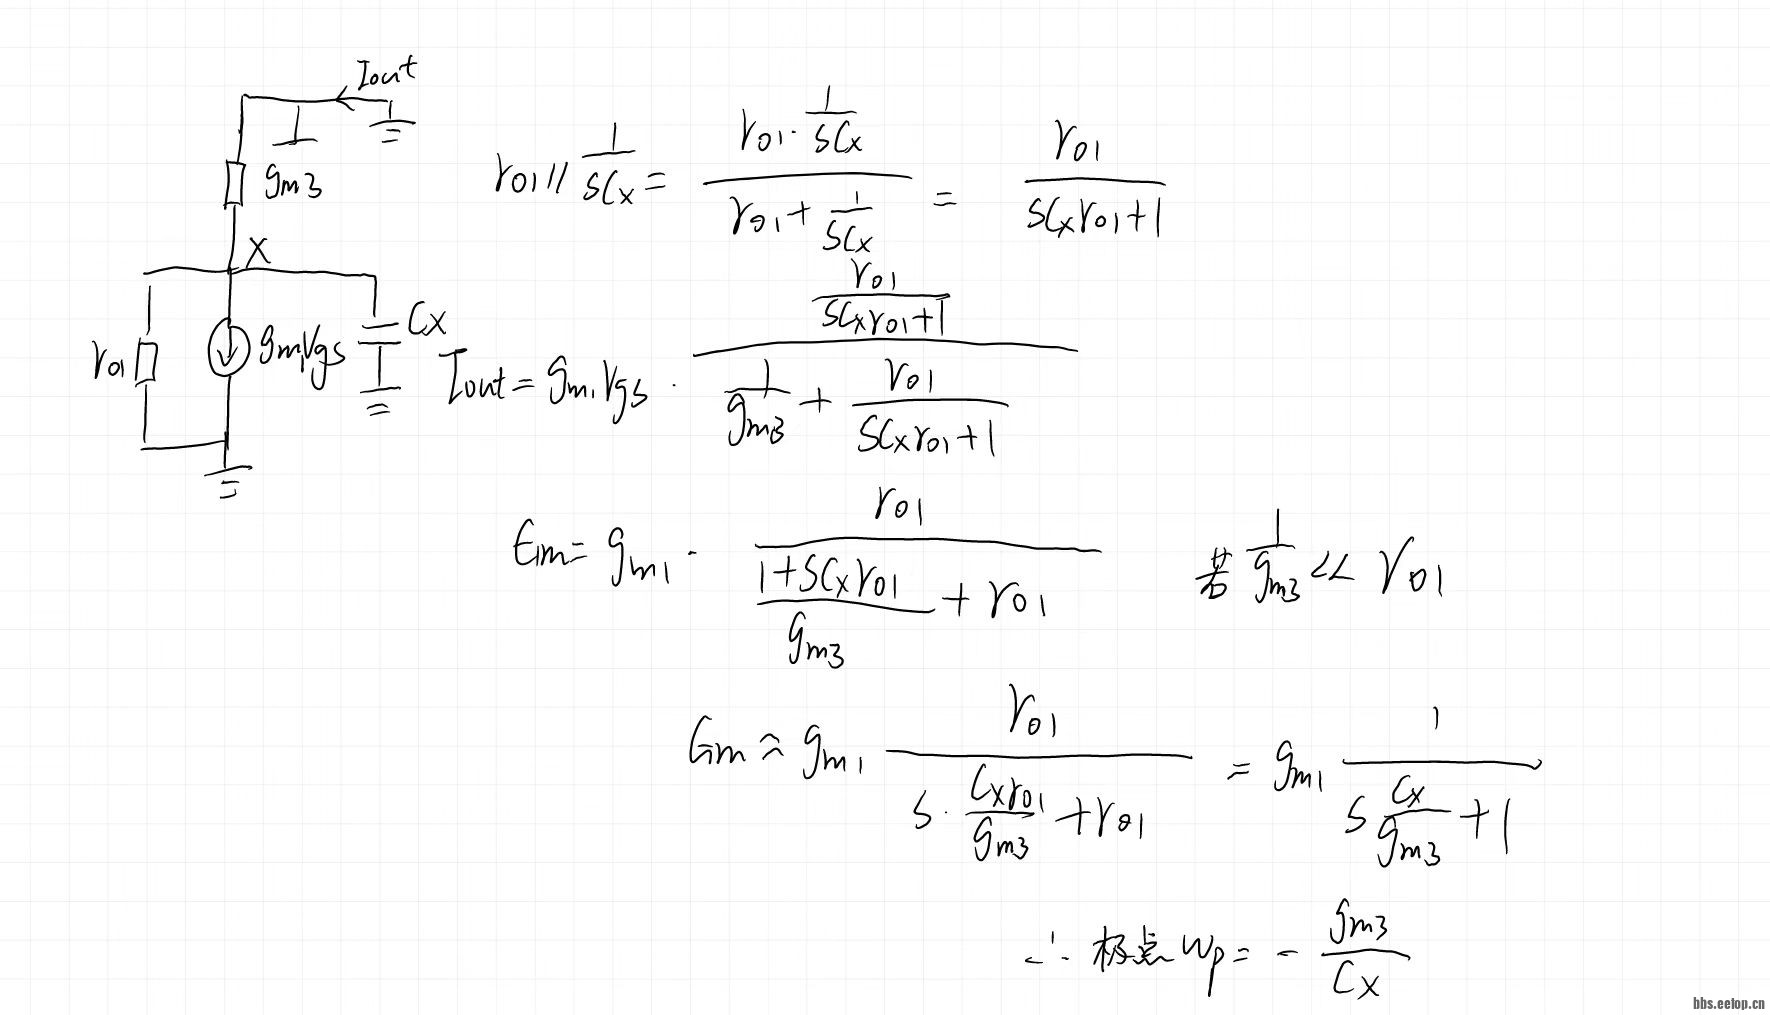 Iout
gm3
X
ro1
gm1Vgs
Cx
ro1 // 1/(sCx) = (ro1 · 1/(sCx)) / (ro1 + 1/(sCx)) = ro1 / (sCxro1+1)
Iout = gm1Vgs · (ro1/(sCxro1+1)) / (1/gm3 + ro1/(sCxro1+1))
Gm = gm1 · ro1 / ((1+sCxro1)/gm3 + ro1) 若 1/gm3 << ro1
Gm ≈ gm1 ro1 / (s · Cxro1/gm3 + ro1) = gm1 1 / (s Cx/gm3 + 1)
∴ 极点 wp = - gm3/Cx
bbs.eetop.cn